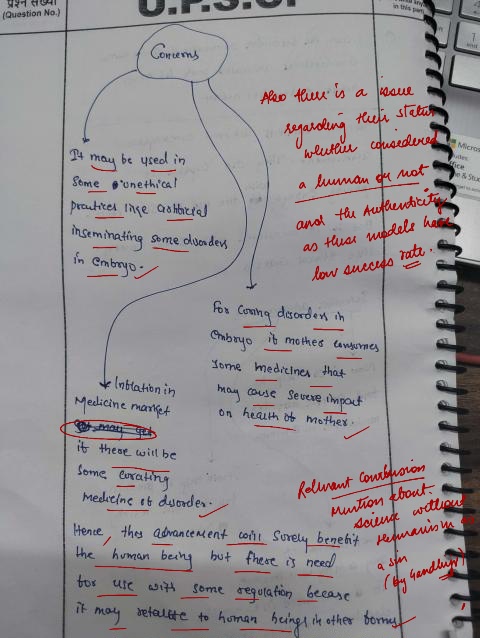 प्रश्न संख्या
(Question No.)
U.P.S.C.
in this part
Concerns
It may be used in
some unethical
practices like artificial
inseminating some disorders
in embryo.
For curing disorders in
embryo if mother consumes
some medicines that
may cause severe impact
on health of mother.
Inflation in
Medicine market
if there will be
some curating
medicine of disorder.
Hence, this advancement will surely benefit
the human being but there is need
for use with some regulation becase
it may to human beings in other forms
Also there is a issue
regarding their status
whether considered
a human or not
and the Authenticity
as these models have
low success rate.
Relevant Conclusion
Mention about
science without
Humanism is
a sin
(by Gandhiji)
Micros
ffice
e & Stu